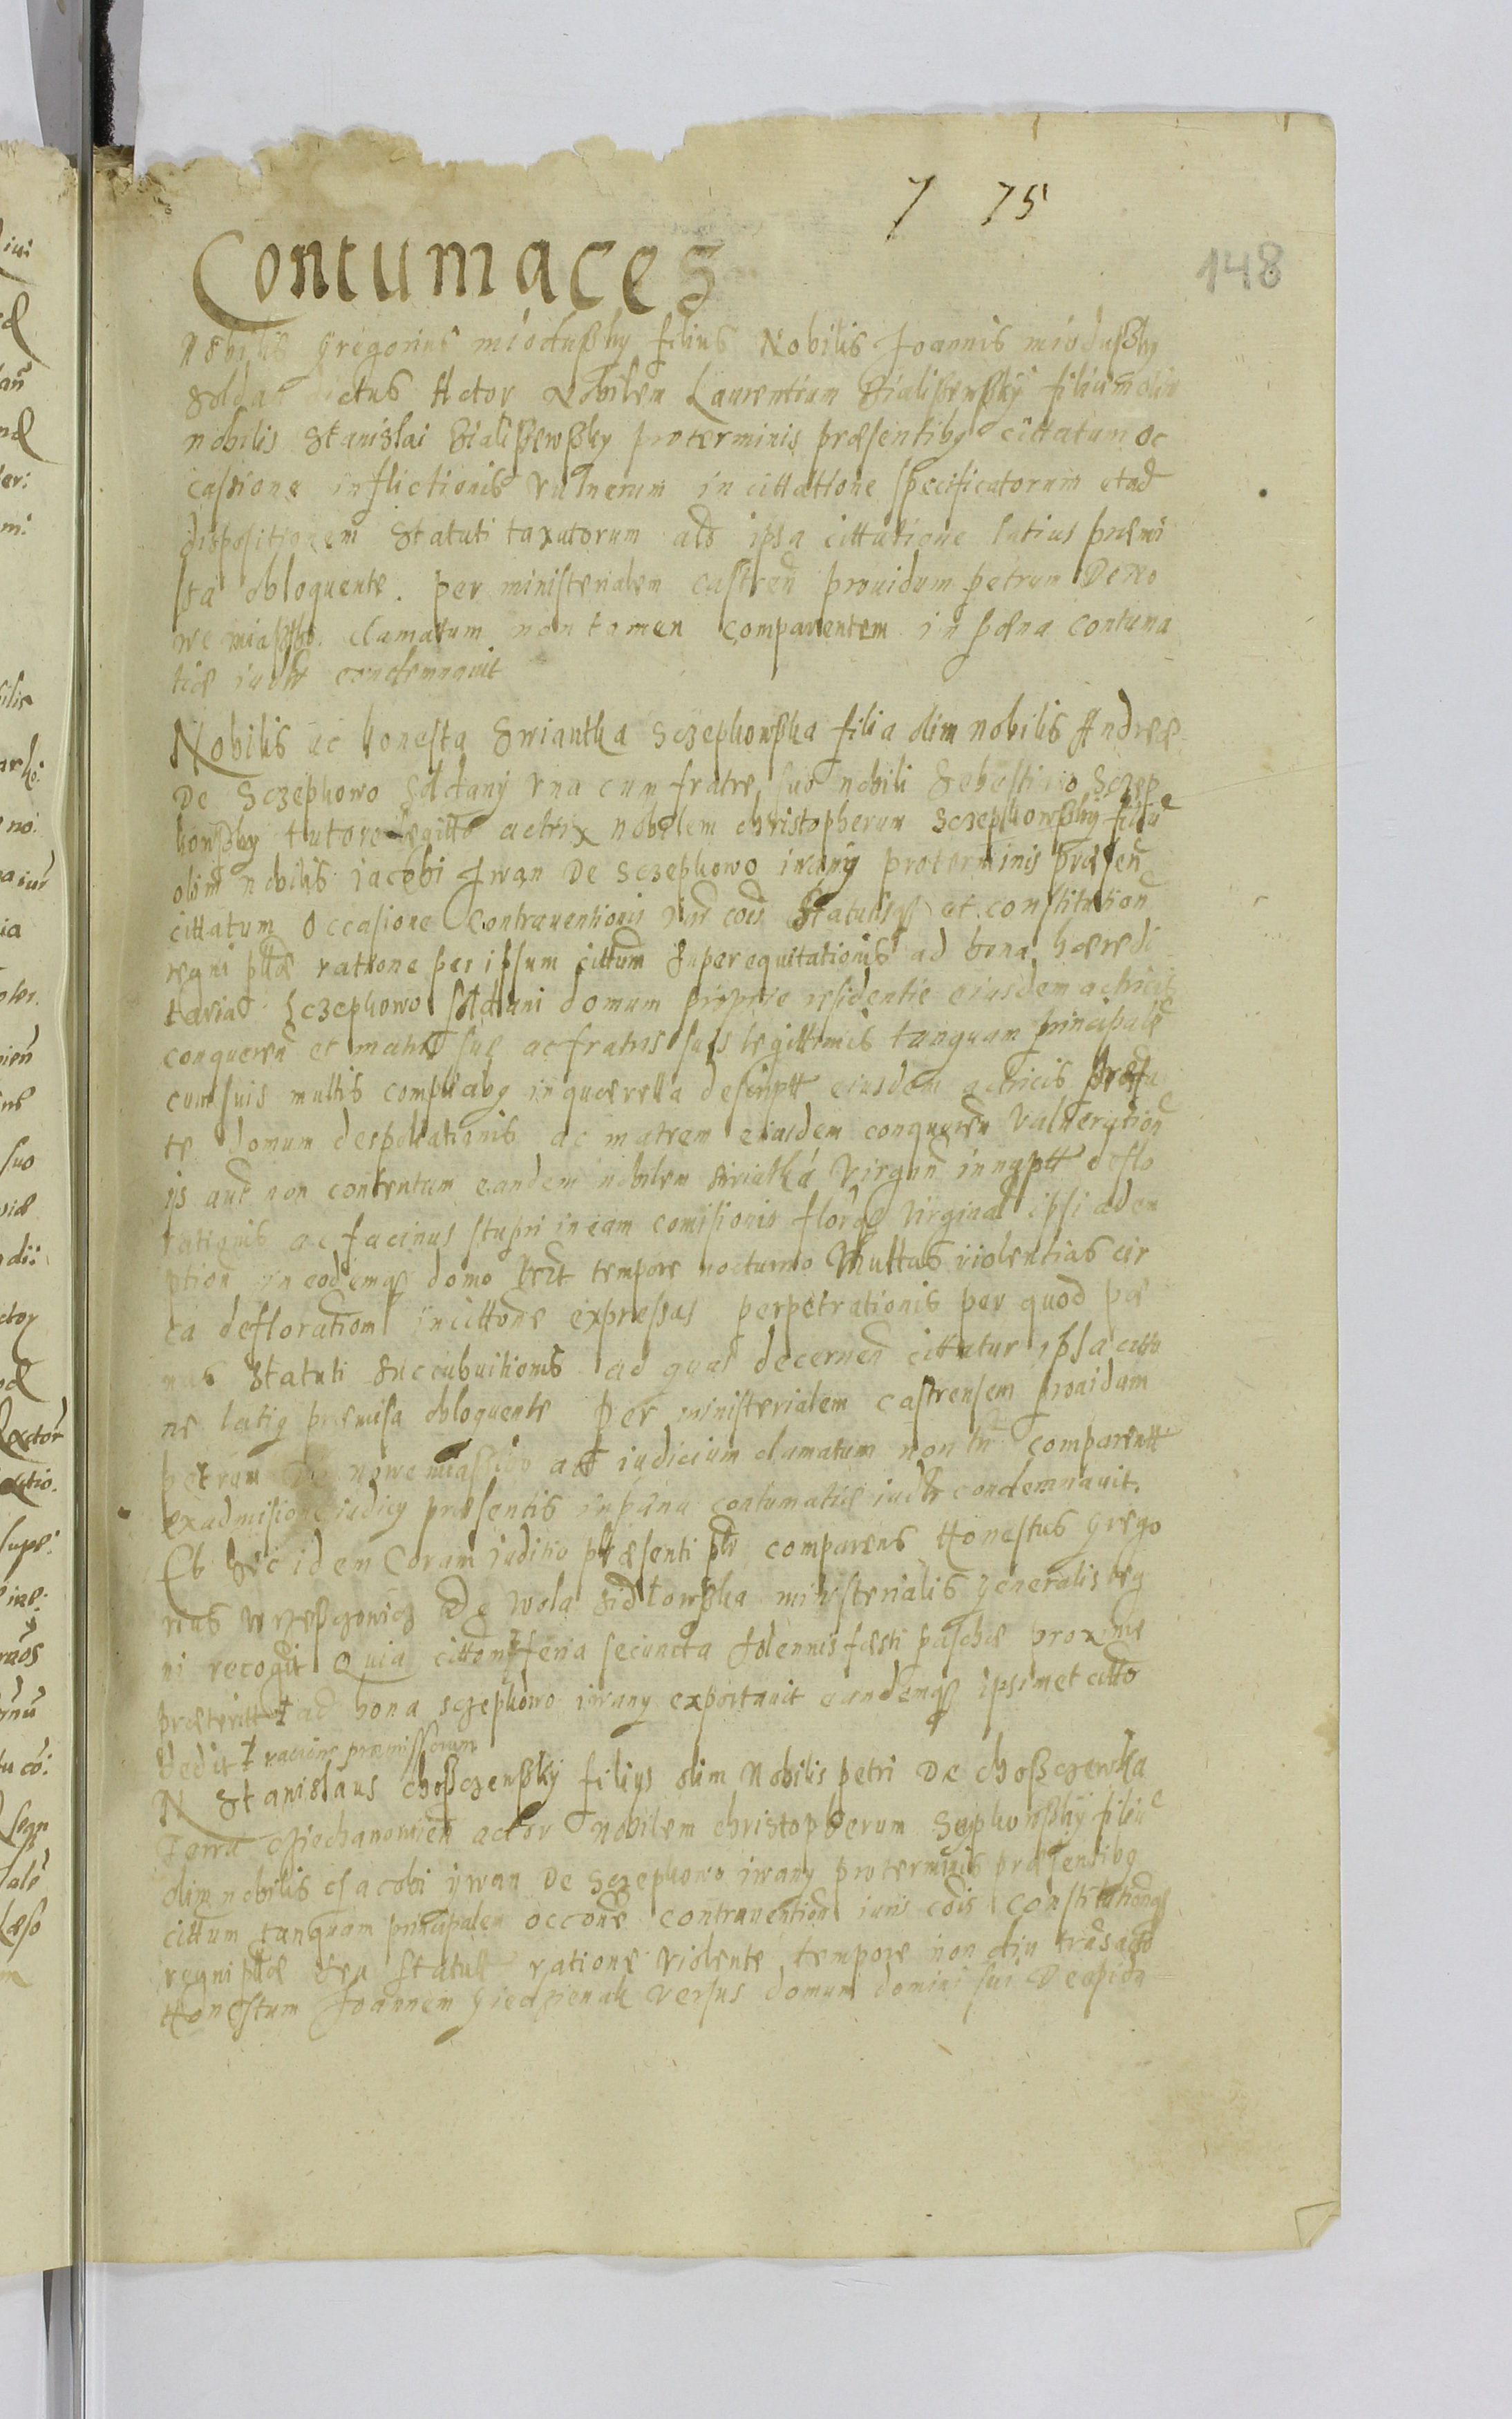 7 75
148
Contumaces
Nobilis Gregorius miodußky filius Nobilis Joannis miodußky
Soldan dictus Actor Nobilem Laurentium Bialißewßky filium olim
nobilis Stanislai Bialißewßky pro terminis præsentiby cittatum oc
casione inflictionis vulnerum in cittattione specificatorum et ad
dispositionem Statuti taxatorum ad ipsa cittatione latius præmi
sta obloquente. per ministerialem castren prouidum petrum De no
we miasthο clamatum non tamen comparentem in pæna contuma
tiæ iudtr condemnauit
Nobilis ac honesta Swiantka Sczepkowßka filia olim nobilis Andreæ
De Sczepkowo Soldany vna cum fratre suo nobili Sebastiano Sczep
kowßky tutore legitto actrix Nobilem christopherum Sczepkowßky filiu
olim nobilis iacobi Jwan De Sczepkowo iwany pro terminis præsen
cittatum Occasione Contrauentionis iur cois Statutisq et constitution
regni pttæ rattione per ipsum cittum Superequitationis ad bona hæredi
taria Sczepkowo Soldani domum proprie residentie eiusdem actricis
conqueren et matris sue ac fratris suis legittimis tanquam principale
cum suis multis complciby in quærella descriptt eiusdem actricis præfa
te domum despoliationis ac matrem eiusdem conqueren Vulneration
ijs aut non contentum eandem nobilem Swiatka Virgin innuptt deflo
rationis ac facinus stupri in eam comisionis florq Virginal ipsi adem
ption in eodemq domo tempore nocturno Multas violentias cir
ca defloration in cittone expressas perpetrationis per quod pæ
nas Statuti Succubuitionis ad quas decernen cittatur ipsa citto
ne latiq præmisa obloquente Per ministerialem castrensem prouidum
petrum De nowe miastho ad iudicium clamatum non tn comparentt
ex admisione iudicy præsentis in pæna contumatiæ iudtr condemnauit.
Et hic idem Coram iuditio præsenti ptr comparens Honestus Grego
rius wrzesczowicz De Wola Sidlowßka ministerialis generalis reg
ni recogit Quia cittonem feria secuncta solennis fæsti paschæ proxime
præteritt † ad bona Sczepkowo iwany exportauit eandemq ipsimet citto
dedit † ratione præmissorum
N Stanislaus choßczewßky filiys olim Nobilis petri De choßczewka
Terra Cziechanowien actor Nobilem christopherum Sczepkowßky filiu
olim nobilis Jacobi ywan De Sczepkowo iwany pro terminis præsentiby
cittum tanquam principalem occone contrauention iuris cois Constitutionq
regni pttæ Statutt ratione violente tempore non diu transacto
Honestum Joannem versus domum domini sui De